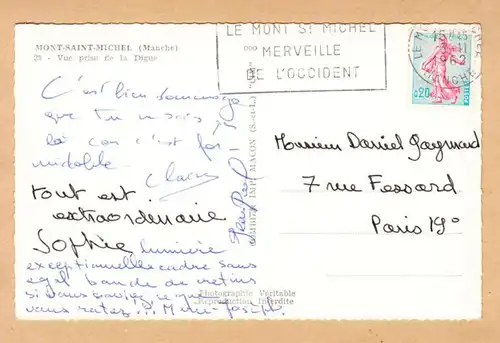 MONT-SAINT-MICHEL (Manche)
28 - Vue prise de la Digue
LE MONT St MICHEL
MERVEILLE
DE L'OCCIDENT
LE MONT
MICHEL
MANCHE
1962
0,20
C'est bien dommage
que tu ne sois
là car c'est for-
midable
Claire
tout est
extraordinaire
Sophie
lumière
exceptionnelle cadre sans
egal bande de cretins
si vous saviez ce que
vous ratez... Marie-Joseph.
Jean Paul
COMBIER IMPR MACON (S.-et-L.) "CIM"
Photographie Véritable
Reproduction Interdite
Monsieur Daniel Gaymard
7 rue Fessard
Paris 19°